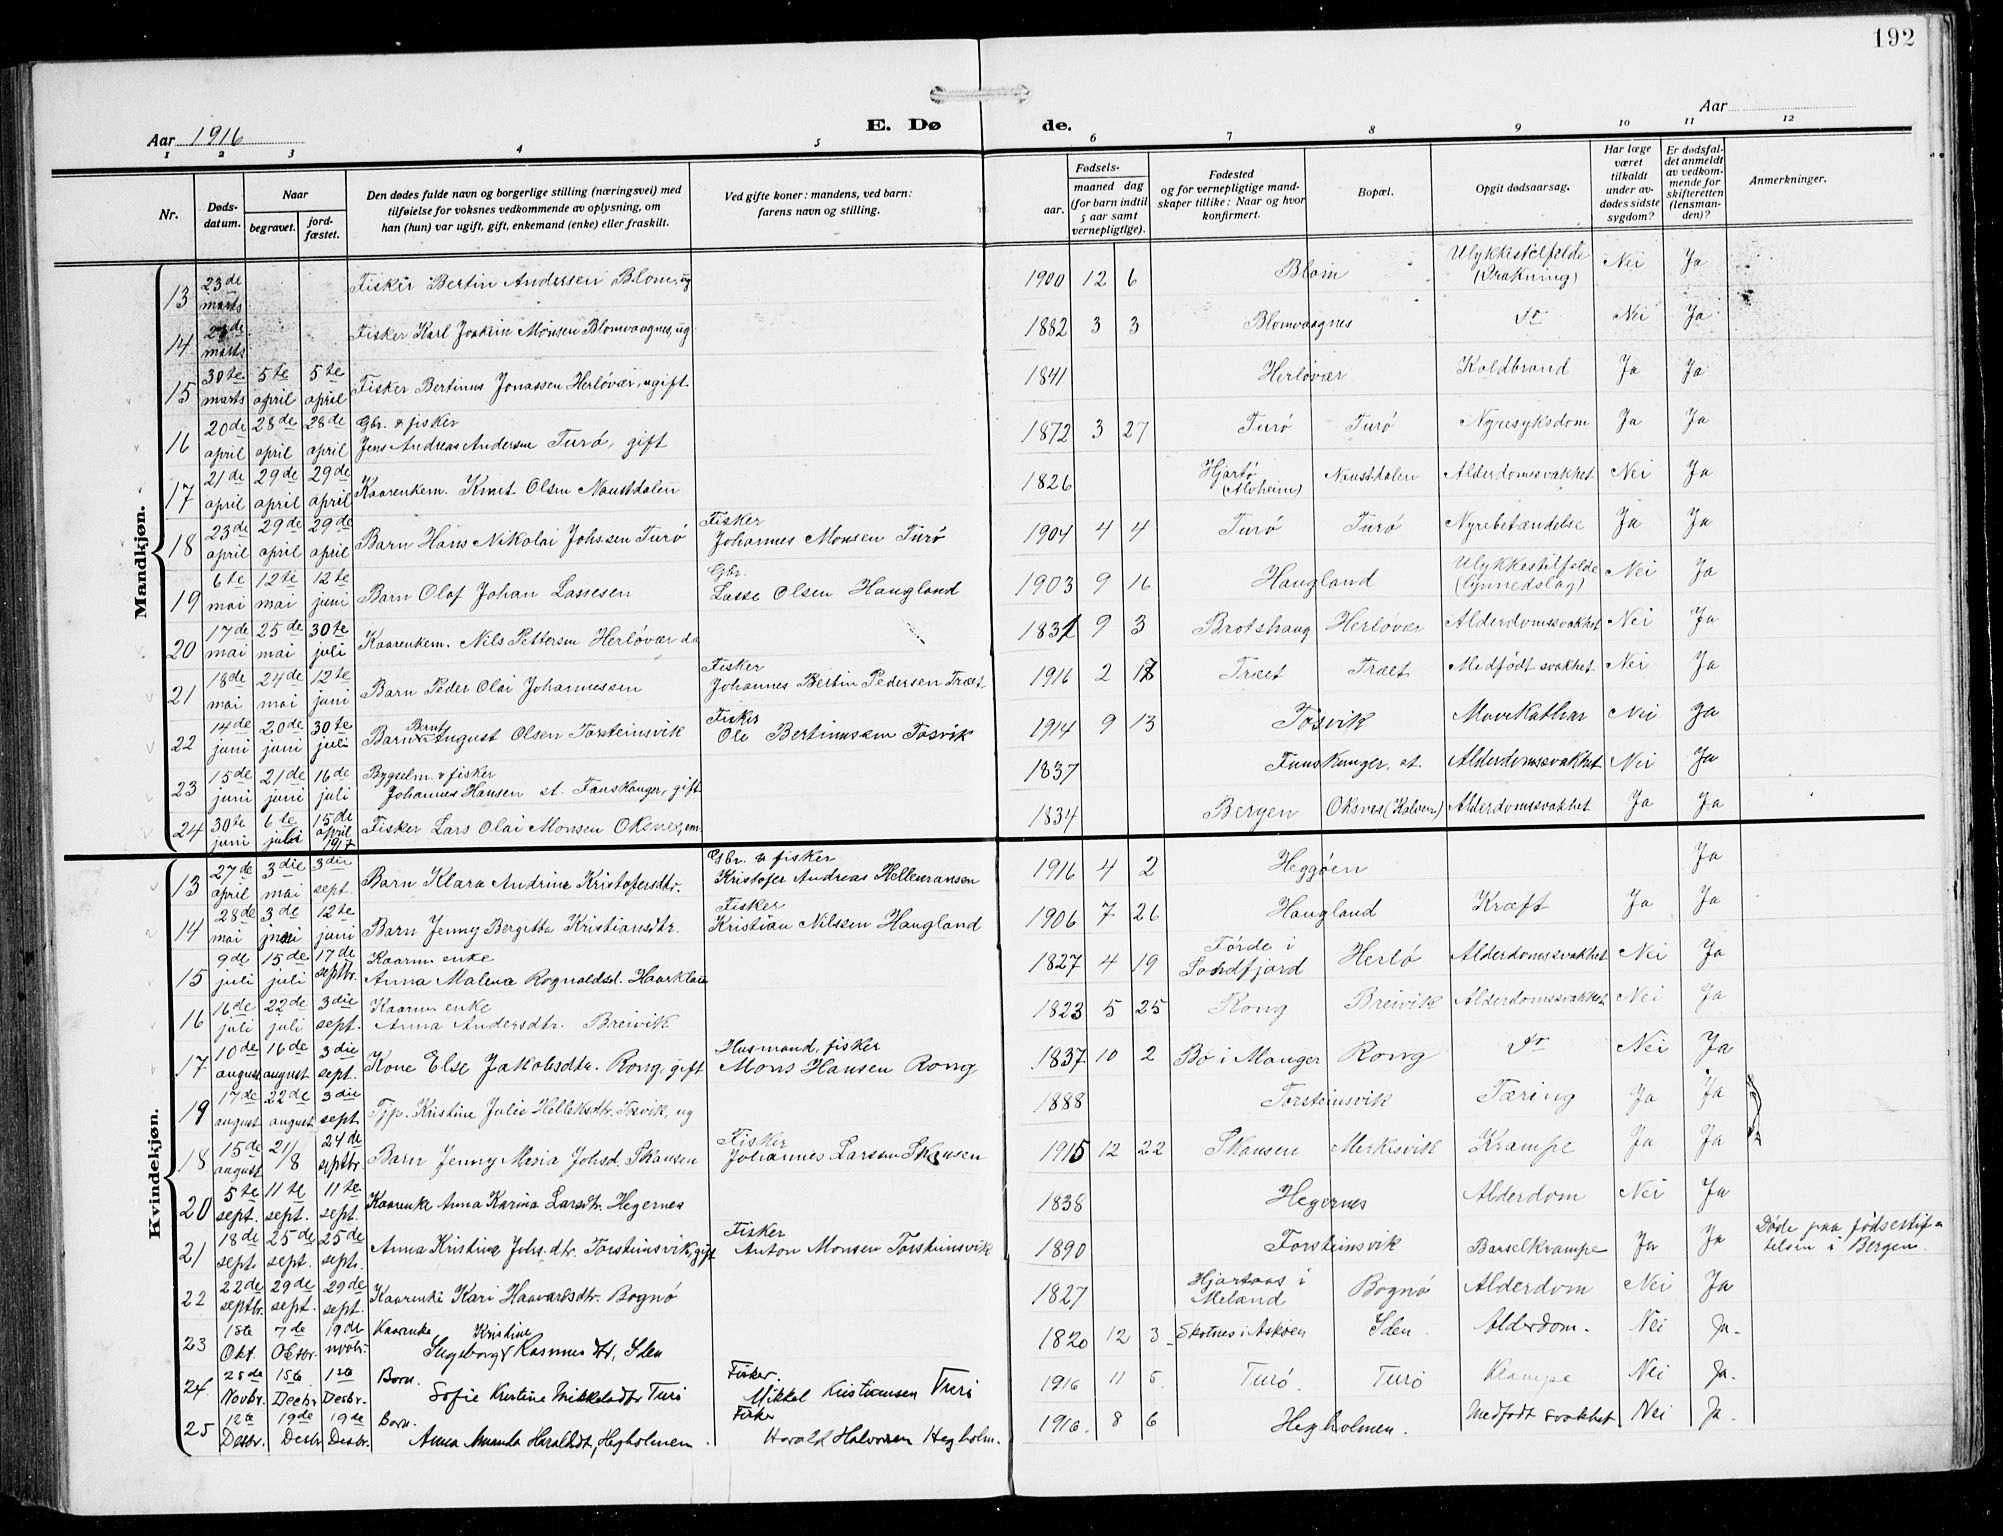 192
Aar 1916
E. Dø de.
Aar
1 2 3 4 5 6 7 8 9 10 11 12
Nr.
Døds-datum.
Naar
begravet.
jord-fæstet.
Den dødes fulde navn og borgerlige stilling (næringsvei) med
tilføielse for voksnes vedkommende av oplysning, om
han (hun) var ugift, gift, enkemand (enke) eller fraskilt.
Ved gifte koner: mandens, ved barn:
farens navn og stilling.
Fødsels-
aar.
maaned dag
(for barn indtil
5 aar samt
vernepligtige).
Fødested
og for vernepligtige mand-
skaper tillike: Naar og hvor
konfirmert.
Bopæl.
Opgit dødsaarsag.
Har læge
været
tilkaldt
under av-
dødes sidste
sygdom?
Er dødsfal-
det anmeldt
av vedkom-
mende for
skifteretten
(lensman-
den)?
Anmerkninger.
Mandkjøn.
13 23de marts Fisker Bertin Andersen Blom, ug 1900 12 6 Blom Ulykkestilfelde (Drukning) Nei Ja
14 23de marts Fisker Karl Joakim Monsen Blomvaagnes, ug 1882 3 3 Blomvaagnes do Nei Ja
15 30te marts 5te april 5te april Fisker Bertinus Jonassen Herløvær, ugift 1841 Herløvær Koldbrand Ja Ja
16 20de april 28de april 28de april Gbr. & fisker Jens Andreas Andersen Turø, gift 1872 3 27 Turø Turø Nyresyksdom Ja Ja
17 21de april 29de april 29de april Kaarenkem. Knut Olsen Naustdalen 1826 Hjartø (Alvheim) Naustdalen Alderdomssvakhet Nei Ja
18 23de april 29de april 29de april Barn Hans Nikolai Johssen Turø Fisker Johannes Monsen Turø 1904 4 4 Turø Turø Nyrebetændelse Ja Ja
19 6te mai 12te mai 12te juni Barn Olaf Johan Lassesen Gbr. Lasse Olsen Haugland 1903 9 16 Haugland Ulykkestilfelde Nei Ja
20 17de mai 25de mai 30te juli Kaarenkem. Nils Pettersen Herløvær 1831 9 3 Brotshaug Herløvær Alderdomssvakhet Nei Ja
21 18de mai 24de mai 12te juni Barn Peder Olai Johannessen Fisker Johannes Bertin Pedersen Træet. 1916 2 18 Træet Træet Medfødt svakhet Nei Ja
22 14de juni 20de juni 30te juli Barn Bernt August Olsen Torsteinsvik Fisker Ole Bertinussen Tosvik 1914 9 13 Tosvik Mavekathar Nei Ja
23 15de juni 21de juni 16de juli Bygselm. & fisker Johannes Hansen st. Fauskanger, gift 1837 Fauskanger, st. Alderdomssvakhet Nei Ja
24 30te juni 6te juli 15de april 1917 Fisker Lars Olai Monsen Oksnes, em. 1834 Bergen Oksnes (Kalven) Alderdomssvakhet Ja Ja
Kvindekjøn.
13 27de april 3die mai 3die sept. Barn Klara Andrine Kristofersdtr. Gbr. & fisker Kristofer Andreas Helleuransen 1916 4 2 Heggøen Ja
14 28de mai 3de juni 12te juni Barn Jenny Bergitta Kristiansdtr. Fisker Kristian Nilssen Haugland 1906 7 26 Haugland Kræft Ja Ja
15 9de juli 15de juli 17de septbr. Kaarm. enke Anna Malena Rognaldsd. Haarklau 1827 4 19 Førde i Søndfjord Herlø Alderdomssvakhet Nei Ja
16 16de juli 22de juli 3die sept. Kaarm enke Anna Andersdtr. Breivik 1823 5 25 Rong Breivik Alderdomssvakhet Nei Ja
17 10de august 16de august 3die sept. Kone Else Jakobsdtr. Rong, gift Husmand, fisker Mons Hansen Rong 1837 10 2 Bø i Manger Rong do Nei Ja
19 17de august 22de august 3die sept. Tjp. Kristine Julie Helleksdtr. Tosvik, ug 1888 Torsteinsvik Tæring Ja Ja
18 15de august 21/8 24de septbr Barn Jenny Maria Johsd. Skansen Fisker Johannes Larssen Skansen 1915 12 22 Skansen Merkesvik Krampe Ja Ja
20 5te sept. 11te sept. 11te sept. Kaarenke Anna Karina Larsdtr. Hegernes 1838 Hegernes Alderdom Nei Ja
21 18de sept. 25de sept. 25de sept. Anna Kristine Johs.dtr. Torsteinsvik, gift Fisker Anton Monsen Torsteinsvik 1890 Torsteinsvik Barselkrampe Ja Ja Døde paa fødselstif- telsen i Bergen.
22 22de septbr. 29de sept. 29de sept. Kaarenke Kari Haavardsdtr. Bognø 1827 Hjartaas i Meland Bognø Alderdom Nei Ja
23 1ste Okt. 7de Oktbr. 19de novbr. Kaarenke Ingeborg Kristine Rasmusdtr, Iden 1820 12 3 Skotnes i Askøen Iden Alderdom. Nei Ja.
24. 25de Novbr. 1ste Desbr 1ste Desbr. Barn. Sofie Kristine Mikkelsdtr Turø Fisker. Mikkel Kristiansen Turø 1916 11 5. Turø. Turø Krampe Nei Ja.
25 12te Desbr. 19de Desbr 19de Desbr. Barn. Anna Amanda Haraldsdt, Hegholmen. Fisker Harald Halvorsen Hegholm. 1916. 8 6 Hegholmen. Medfødt svakhet Nei Ja.